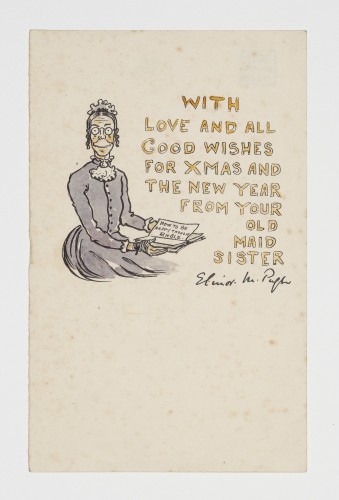 WITH
LOVE AND ALL
GOOD WISHES
FOR XMAS AND
THE NEW YEAR
FROM YOUR
OLD
MAID
SISTER
Elinor. M. Pugh
HOW TO BE
HAPPY THOUGH
SINGLE